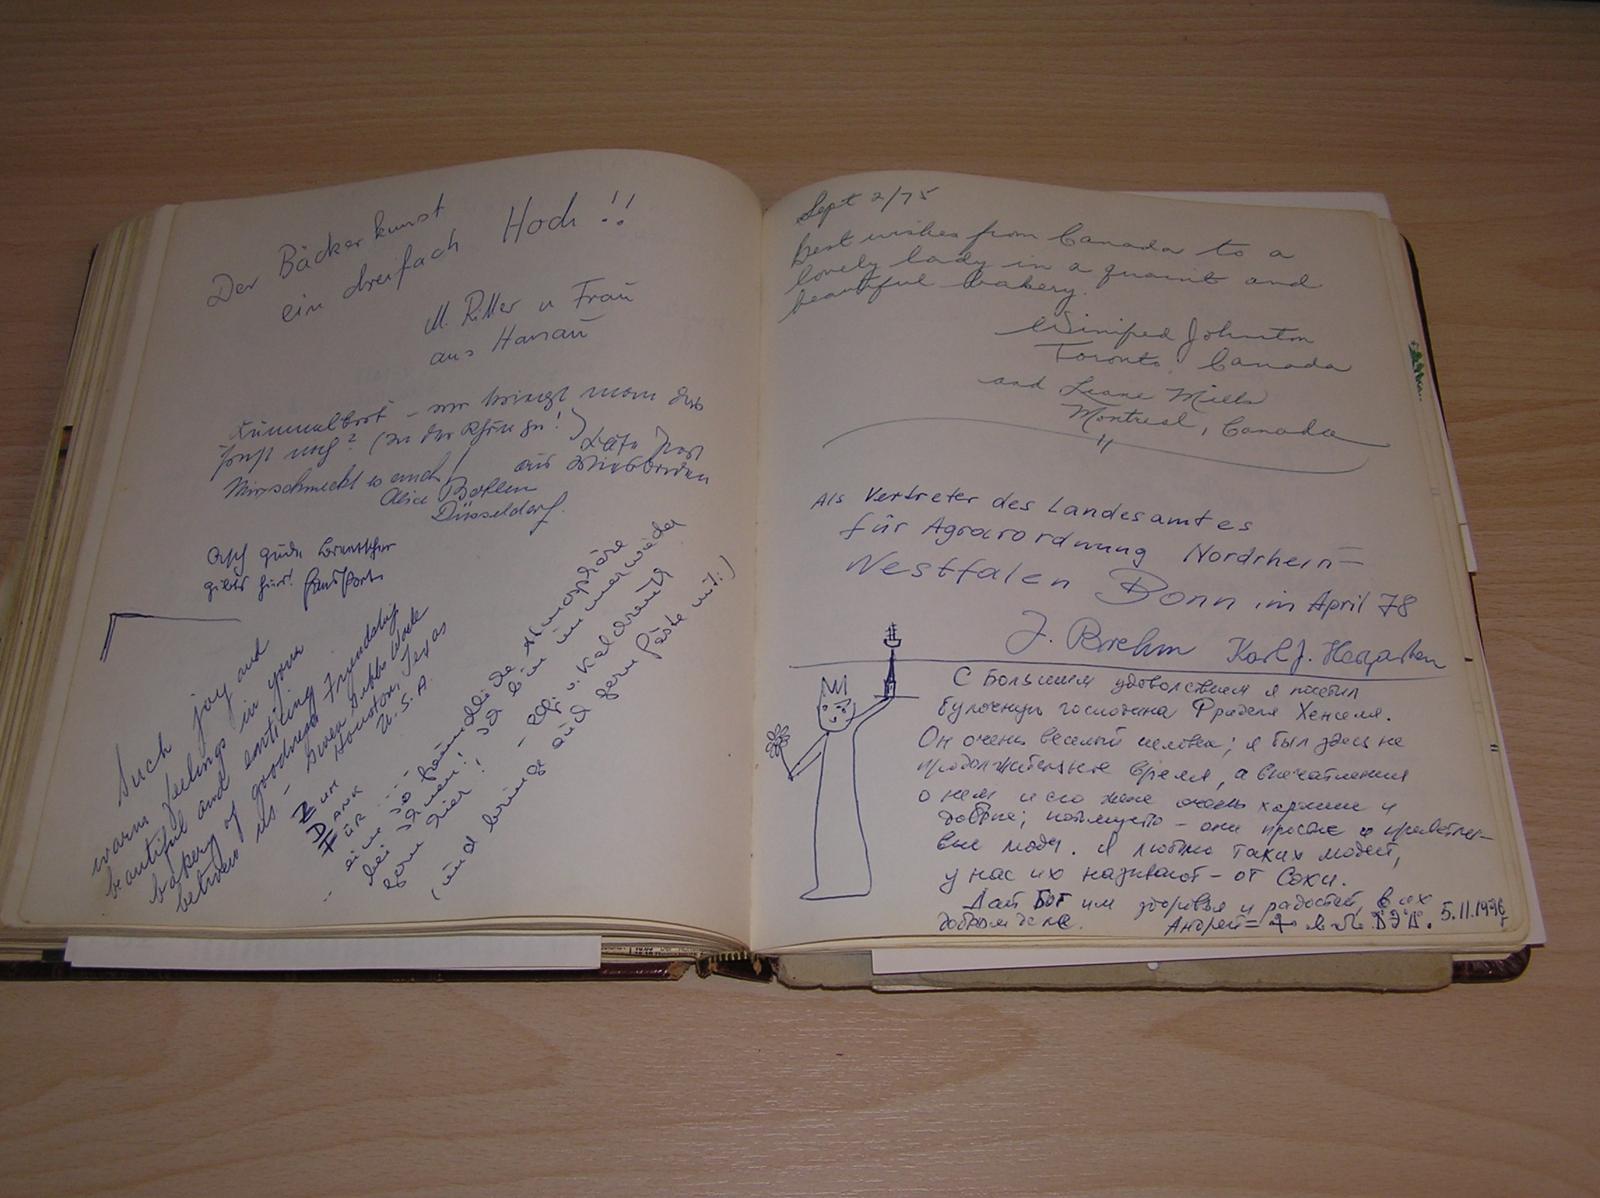 Der Bäckerkunst
ein dreifach Hoch!!
M. Ritter u Frau
aus Hanau
Kümmelbrot - wo kriegt man das
sonst noch? (In der Rhön
aus Wiesbaden
Mir schmeckt es auch!
Alice Bohlen
Düsseldorf.
gibts hier!
Such joy and
warm feelings in your
beautiful and enticing Friendship
bakery of goodness
between us - Gwen
Houston, Texas
U.S.A.
ZUM
DANK
FÜR
- eine so freundliche Atmosphäre
bei Ihnen! Ich bin immer wieder
gerne hier!
(und bringe auch gern Gäste mit!)
Sept 2/75
Best wishes from Canada to a
lovely lady in a quaint and
beautiful bakery.
Winifred Johnston
Toronto, Canada
and Leane Mills
Montreal, Canada
Als Vertreter des Landesamtes
für Agrarordnung Nordrhein=
Westfalen Bonn im April 78
J. Brehm Karl J.
С Большим удовольствием я посетил
булочную господина Фриделя Хенселя.
Он очень веселый человек; я был здесь не
продолжительное время, а впечатления
о нем и его жене очень хорошие и
добрые; потому что - они простые и приветли-
вые люди. Я люблю таких людей,
у нас их называют - от Сохи.
Дай Бог им здоровья и радостей, в их
добром деле.
Андрей 5.11.1996